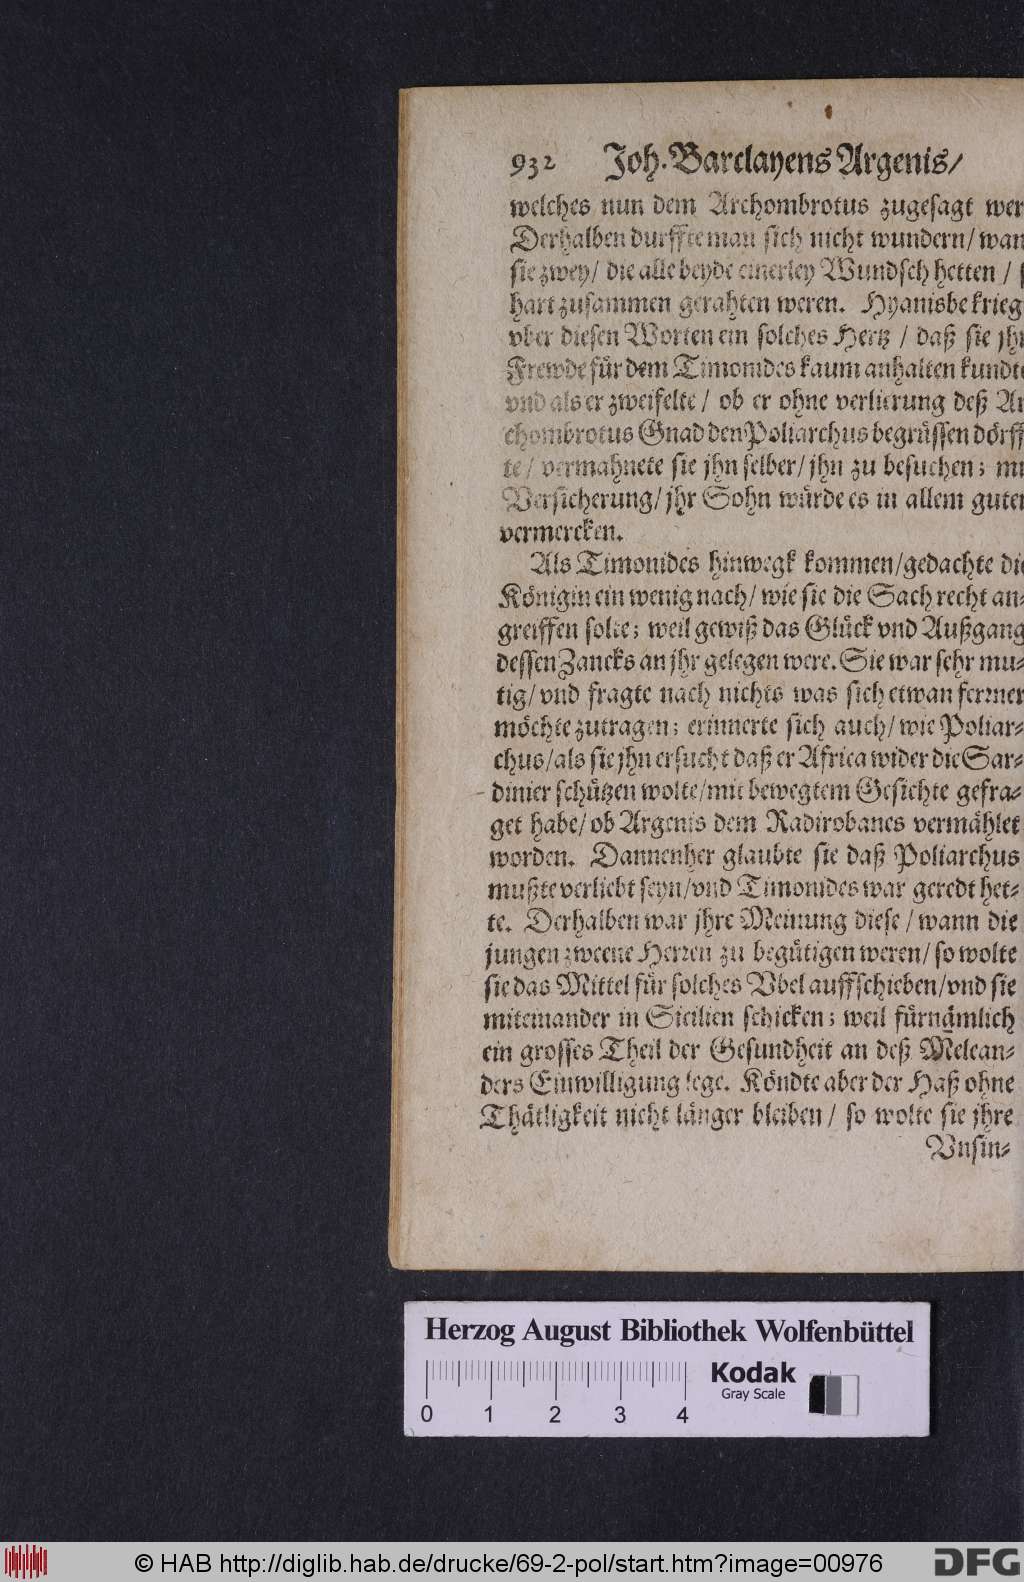 932 Joh. Barclayens Argenis/
welches nun dem Archombrotus zugesagt wer
Derhalben durffte man sich nicht wundern/ wan
sie zwey/ die alle beyde einerley Wundsch hetten / s
hart zusammen gerahten weren. Hyanisbe krieg
vber diesen Worten ein solches Hertz / daß sie jhr
Frewde für dem Timonides kaum anhalten kundte
vnd als er zweifelte / ob er ohne verlierung deß Ar
chombrotus Gnad den Poliarchus begrüssen dörff
te/ vermahnete sie jhn selber/ jhn zu besuchen; mi
Versicherung/ jhr Sohn würde es in allem guten
vermercken.
Als Timonides hinwegk kommen/gedachte die
Königin ein wenig nach/ wie sie die Sach recht an⸗
greiffen solte; weil gewiß das Glück vnd Außgang
dessen Zancks an jhr gelegen were. Sie war sehr mu⸗
tig/ vnd fragte nach nichts was sich etwan ferrner
möchte zutragen; erinnerte sich auch/ wie Poliar⸗
chus/als sie jhn ersucht daß er Africa wider die Sar⸗
dinier schützen wolte/mit bewegtem Gesichte gefra⸗
get habe/ ob Argenis dem Radirobanes vermählet
worden. Dannenher glaubte sie daß Poliarchus
mußte verliebt seyn/vnd Timonides war geredt het⸗
te. Derhalben war jhre Meinung diese / wann die
jungen zweene Herren zu begütigen weren/ so wolte
sie das Mittel für solches Vbel auffschieben/vnd sie
miteinander in Sicilien schicken; weil fürnämlich
ein grosses Theil der Gesundheit an deß Melean⸗
ders Einwilligung lege. Köndte aber der Haß ohne
Thätligkeit nicht länger bleiben / so wolte sie jhre
Vnsin⸗
Herzog August Bibliothek Wolfenbüttel
Kodak
Gray Scale
0 1 2 3 4
© HAB http://diglib.hab.de/drucke/69-2-pol/start.htm?image=00976
DFG